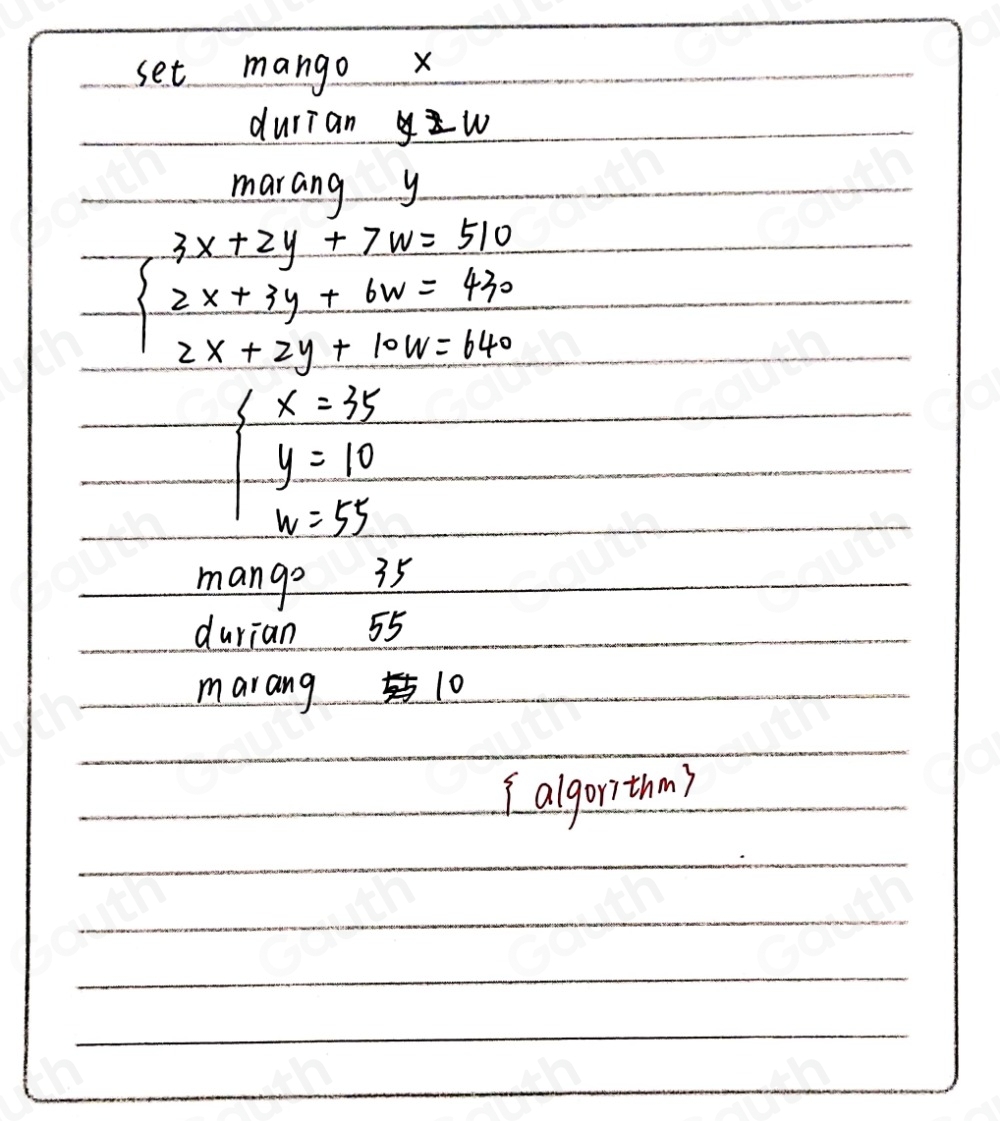 set mango x
durian w
marang y
3x+2y+7w=510
2x+3y+6w=430
2x+2y+10w=640
x=35
y=10
w=55
mango 35
durian 55
marang 10
{algorithm}